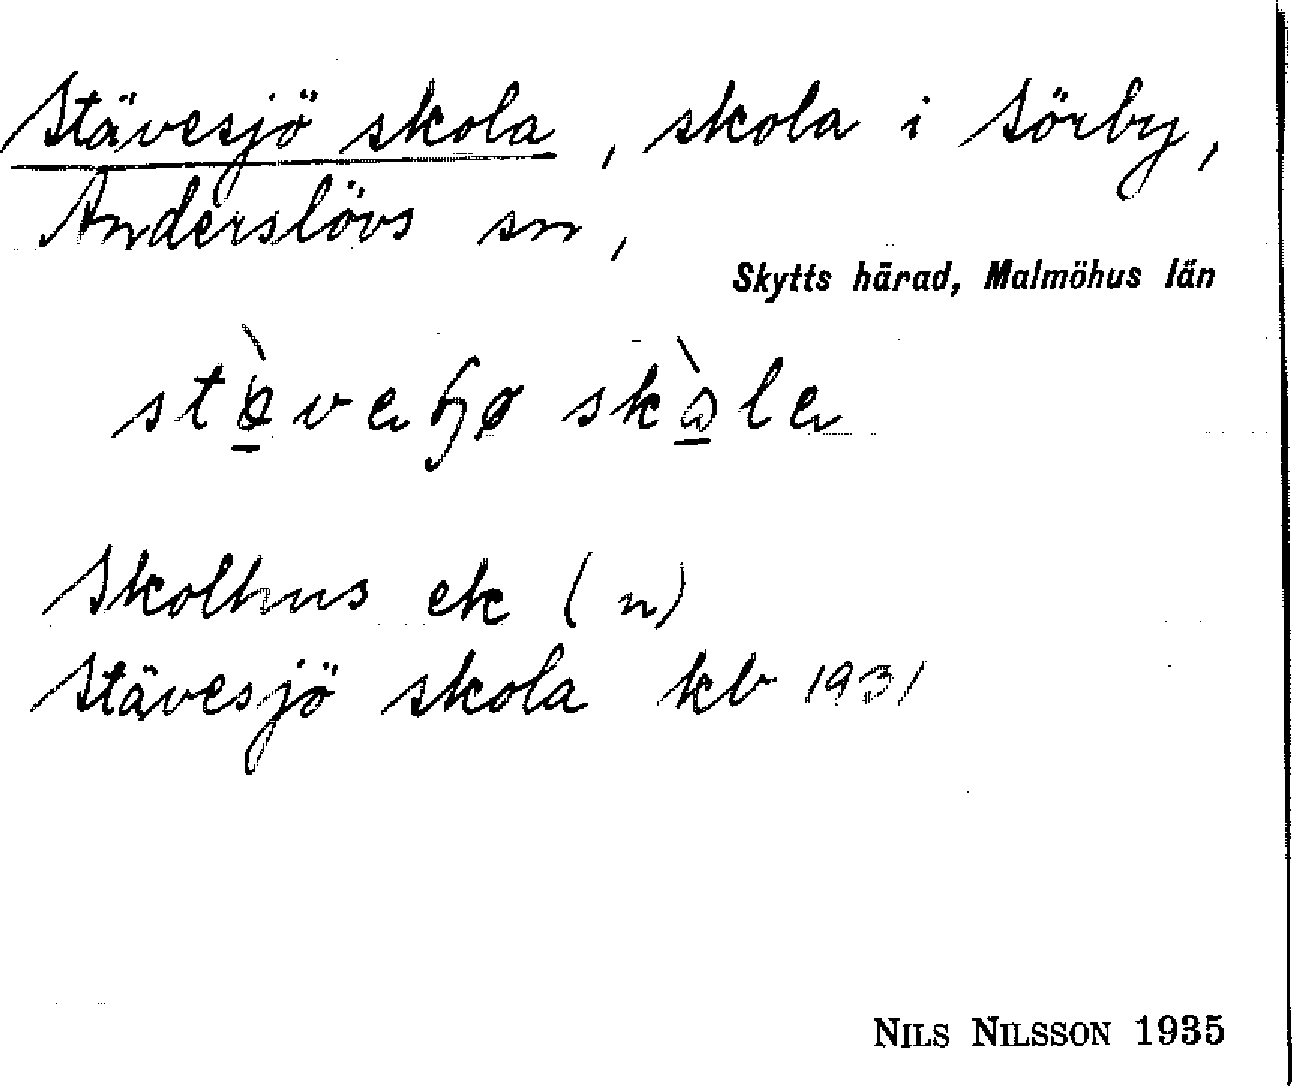 Stävesjö skola, skola i Sörby,
Anderslövs sn,
Skytts härad, Malmöhus län
Skolhus ek (n)
Stävesjö skola kb 1931
NILS NILSSON 1935